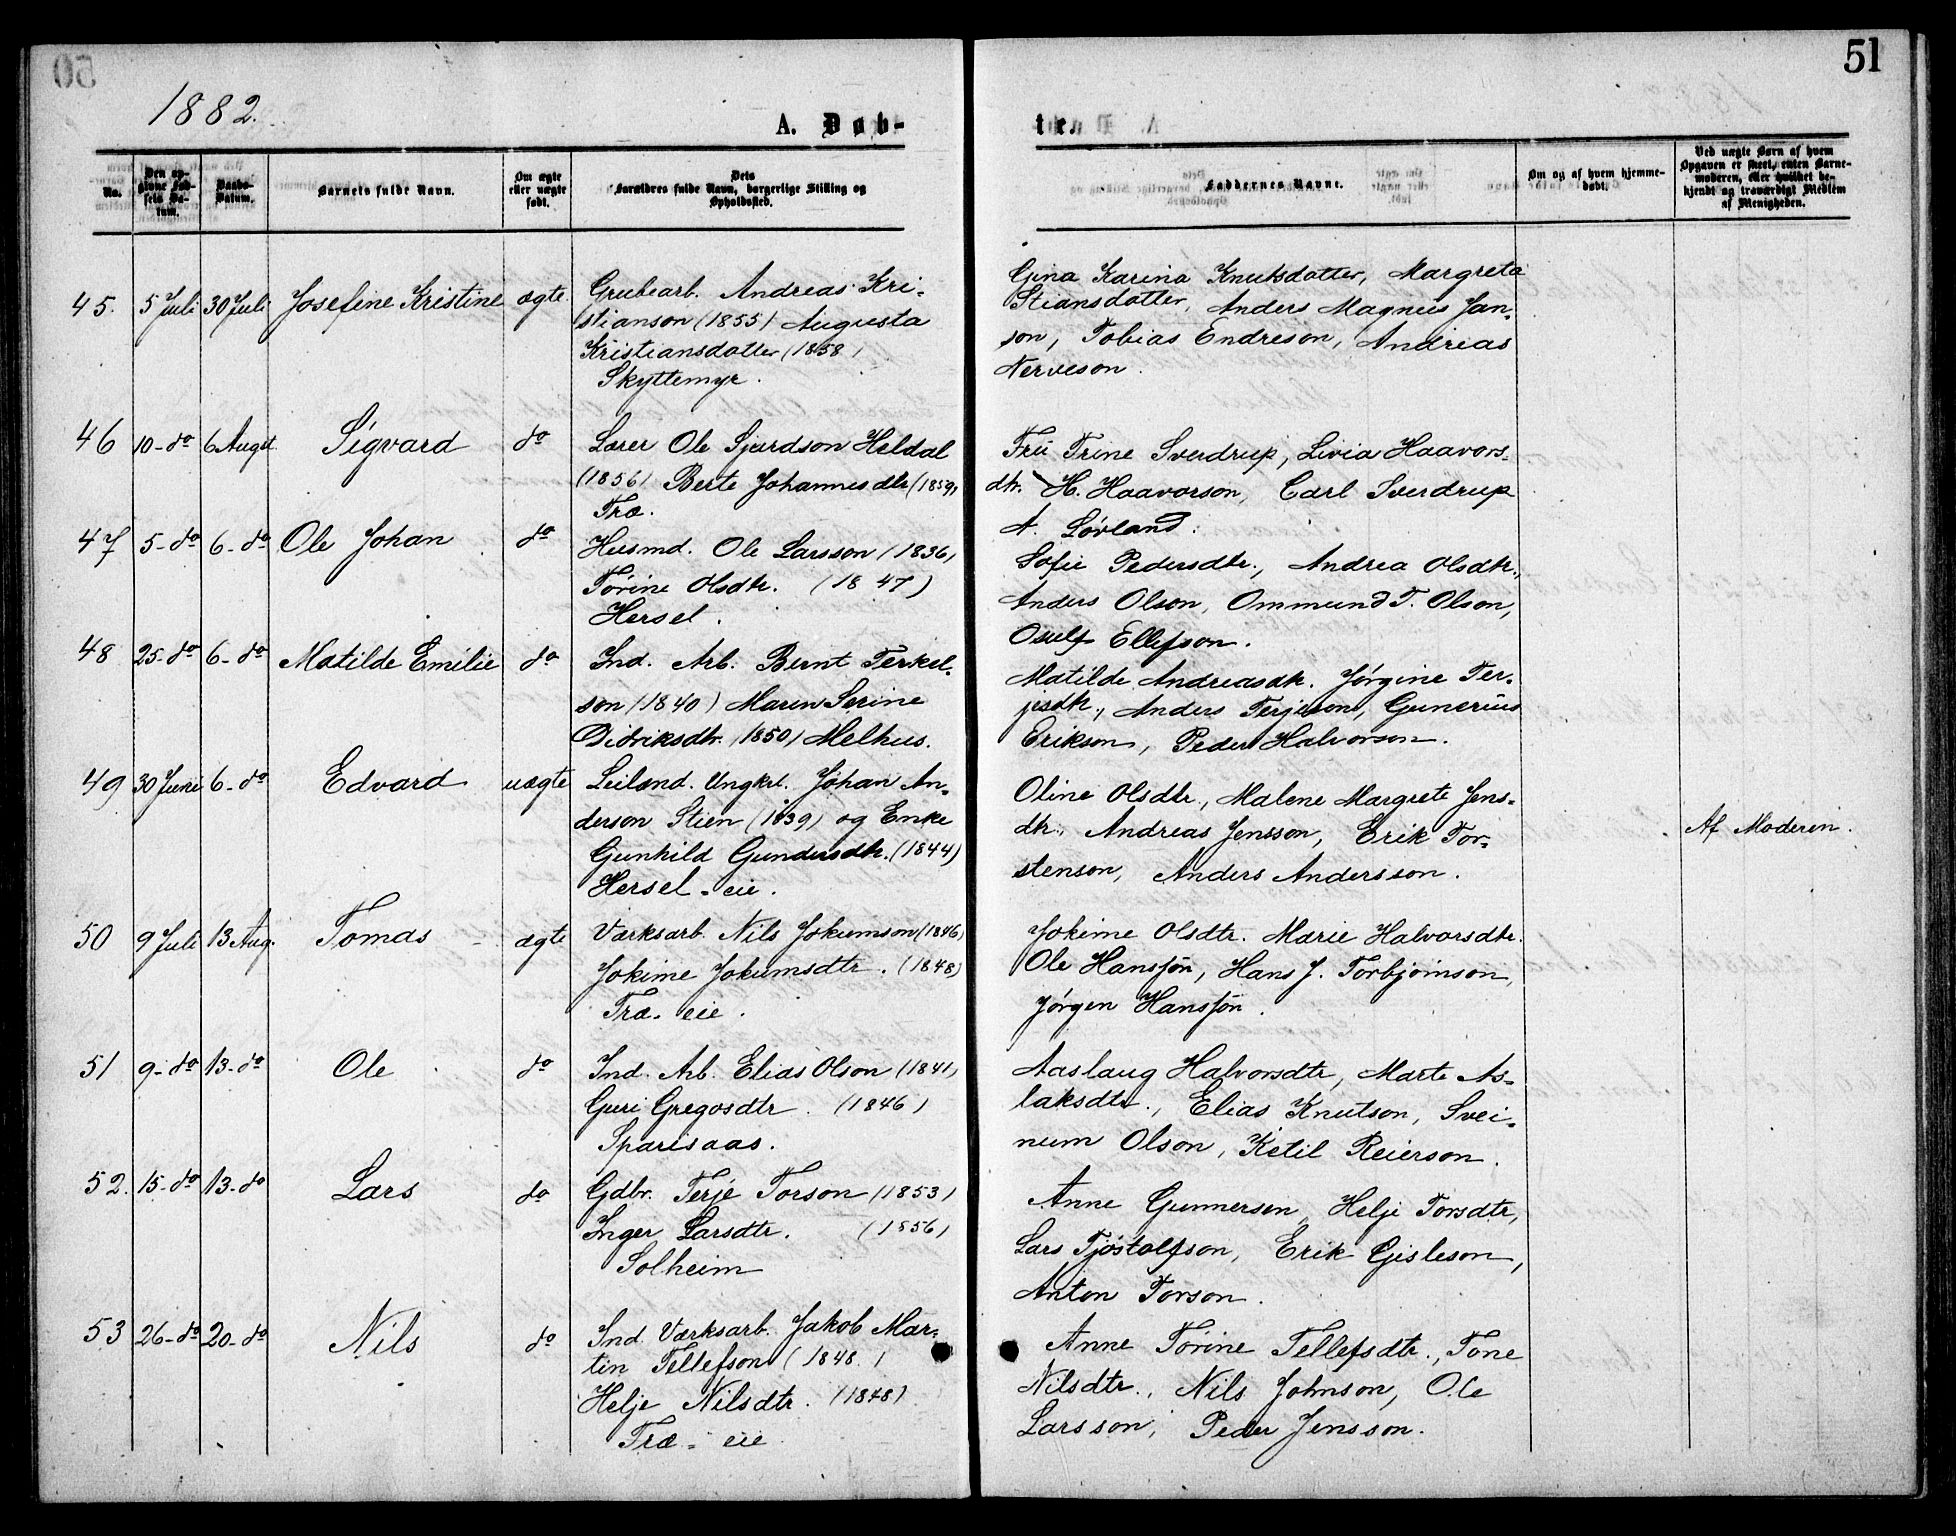 51
1882.
A. Døb-
te.
No.
Den op-
givne Fød-
sels Da-
tum.
Daabs-
Datum.
Barnets fulde Navn.
Om ægte
eller uægte
født.
Dets
Forældres fulde Navn, borgerlige Stilling og
Opholdssted.
Faddernes Navne.
Om og af hvem hjemme-
døbt.
Ved uægte Børn af hvem
Opgaven er skeet, enten Barne-
moderen, eller hvilket be-
kjendt og troværdigt Medlem
af Menigheden.
45. 5 Juli 30 Juli Josefine Kristine ægte Grubearb. Andreas Kri-
stianson (1855) Augusta
Kristiansdatter (1858)
Skyttemyr.
Gina Karina Knutsdatter, Margreta
Stiansdatter, Anders Magnus Jan-
son, Tobias Endreson, Andreas
Nerveson.
46 10-do 6 Augst. Sigvard do Lærer Ole Sjurdson Heldal
(1856) Berte Johannesdtr (1859)
Træ.
Fru Trine Sverdrup, Livia Haavors-
dtr. H. Haavorson, Carl Sverdrup
A. Løvland.
47 5-do 6-do Ole Johan do Husmd. Ole Larsson (1836)
Tørine Olsdtr. (1847)
Hersel.
Sofie Pedersdtr., Andrea Olsdtr.,
Anders Olson, Ommund T. Olson,
Osulf Ellefson.
48 25-do 6-do Matilde Emilie do Ind. Arb. Bernt Terkel-
son (1840) Maren Serine
Didriksdtr. (1850) Melhus.
Matilde Andreasdtr. Jørgine Ter-
jesdtr., Anders Terjeson, Gunerius
Erikson, Peder Halvorson.
49 30 Juni 6-do Edvard uægte Leilænd. Ungkrl. Johan An-
derson Stien (1839) og Enke
Gunhild Gundersdtr. (1844)
Hersel-eie.
Oline Olsdtr., Malene Margrete Jens-
dtr., Andreas Jensson, Erik Tor-
stenson, Anders Andersson.
Af Moderen.
50 9 Juli 13 Aug. Tomas ægte Værksarb. Nils Jokumson (1846)
Jokime Jokumsdtr. (1848)
Træ-eie.
Jokime Olsdtr. Marie Halvorsdtr.
Ole Hansson, Hans J. Torbjørnson,
Jørgen Hansson.
51 9-do 13-do Ole do Ind. Arb. Elias Olson (1841)
Guri Gregosdtr. (1846)
Sparisaas.
Aaslaug Halvorsdtr, Marte As-
laksdtr., Elias Knutson, Svei-
num Olson, Ketil Reierson.
52. 15-do 13-do Lars do Gdbr. Terje Torson (1853)
Inger Larsdtr. (1856)
Solheim
Anne Gunnersen, Helje Torsdtr,
Lars Tjøstolfson, Erik Gisleson,
Anton Torson.
53 26-do 20-do Nils do Ind. Værksarb. Jakob Mar-
tin Tellefson (1848)
Helje Nilsdtr. (1848)
Træ-eie
Anne Tørine Tellefsdtr., Tone
Nilsdtr., Nils Johnson, Ole
Larsson, Peder Jensson.